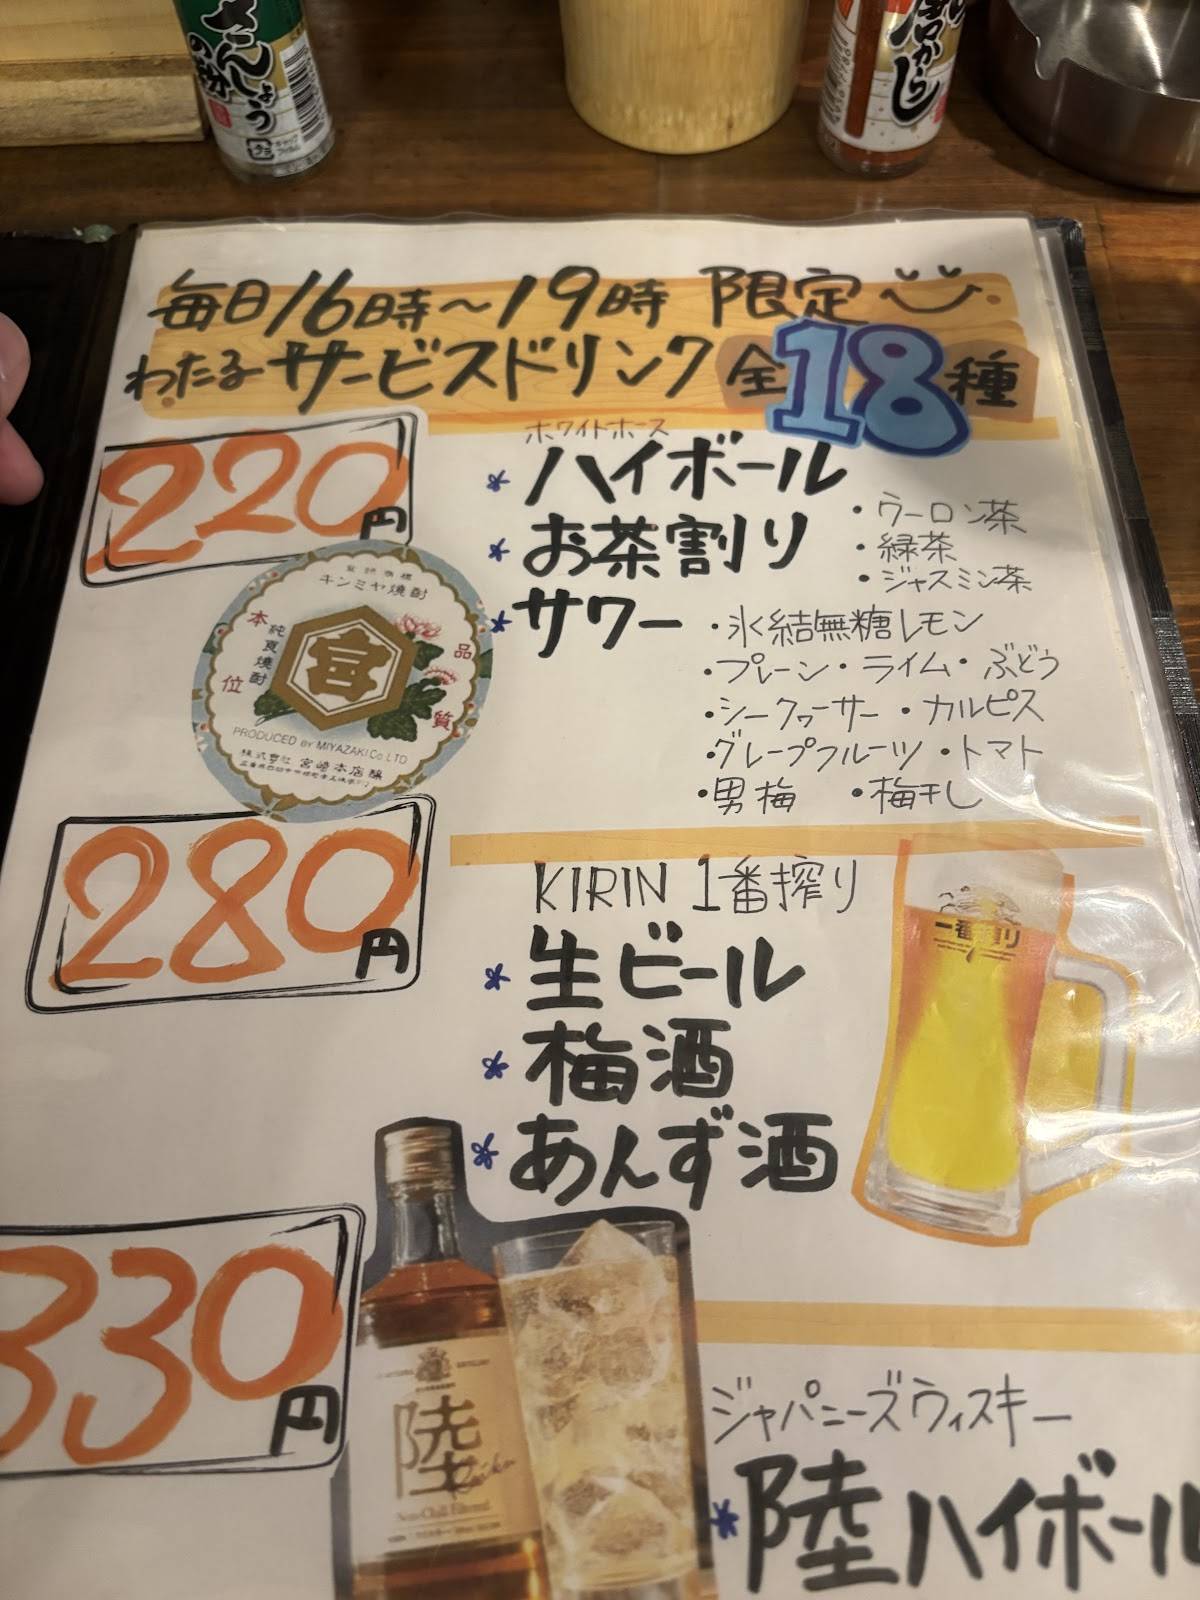 さんしょうの粉
唐からし
毎日16時〜19時 限定
わたるサービスドリンク 全18種
220円
ホワイトホース
ハイボール
お茶割り
・ウーロン茶
・緑茶
・ジャスミン茶
サワー
・氷結無糖レモン
・プレーン・ライム・ぶどう
・シークヮーサー・カルピス
・グレープフルーツ・トマト
・男梅 ・梅干し
登録商標
キンミヤ焼酎
本位
純良焼酎
宮
品質
PRODUCED BY MIYAZAKI Co. LTD
株式會社 宮崎本店釀
280円
KIRIN 1番搾り
生ビール
梅酒
あんず酒
一番搾り
330円
陸
Riku
ジャパニーズウィスキー
陸ハイボール